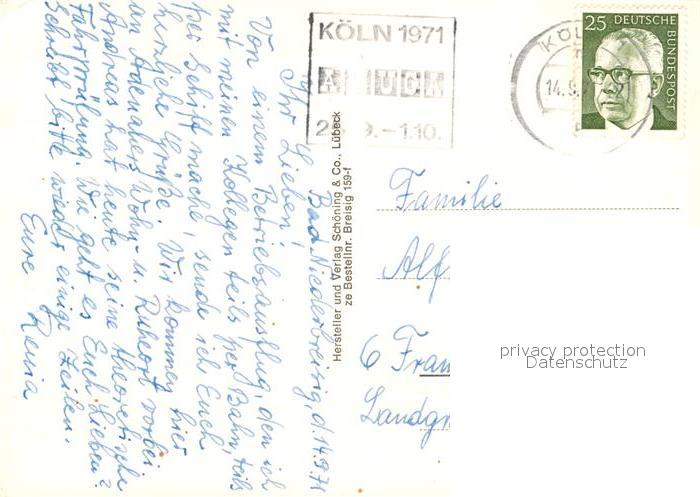 Bad Niederbreisig, d. 14.9.71
Ihr Lieben!
Von einem Betriebsausflug, den ich
mit meinen Kollegen teils per Bahn, teils
per Schiff mache, sende ich Euch
herzliche Grüße. Wir kommen hier
an Adenauers Wohn- u. Ruheort vorbei
Andreas hat heute seine theoretische
Fahrprüfung. Wie geht es Euch Lieben?
Schreibt bitte wieder einige Zeilen.
Eure
Hersteller und Verlag Schöning & Co., Lübeck
ze Bestellnr. Breisig 159-f
KÖLN 1971
1.10.
KÖL
14.9.
25 DEUTSCHE
BUNDESPOST
Familie
Alf
6 Fran
Landg
privacy protection
Datenschutz